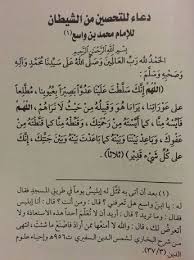 دعاء للتحصين من الشيطان
للإمام محمد بن واسع
(١)
بِسْمِ اللهِ الرَّحْمَنِ الرَّحِيمِ
الحَمْدُ للهِ رَبِّ العَالَمِينَ وَصَلَّى اللهُ عَلَى سَيِّدِنَا مُحَمَّدٍ وَآلِهِ
وَصَحْبِهِ وَسَلَّمَ،
(اللَّهُمَّ إِنَّكَ سَلَّطْتَ عَلَيْنَا عَدُوّاً بَصِيراً بِعُيُوبِنَا، مُطَّلِعاً
عَلَى عَوْرَاتِنَا، يَرَانَا هُوَ وَقَبِيلُهُ مِنْ حَيْثُ لَا نَرَاهُمْ، اللَّهُمَّ
فَآيِسْهُ مِنَّا كَمَا آيَسْتَهُ مِنْ رَحْمَتِكَ، وَقَنِّطْهُ مِنَّا كَمَا قَنَّطْتَهُ مِنْ
عَفْوِكَ، وَبَاعِدْ بَيْنَنَا وَبَيْنَهُ كَمَا بَاعَدْتَ بَيْنَهُ وَبَيْنَ جَنَّتِكَ، إِنَّكَ
عَلَى كُلِّ شَيْءٍ قَدِيرٌ) (ثلاثاً).
(١) بعد أن أتى به تمثّل له إبليس يوماً في طريق المسجد فقال
له: يا ابن واسع هل تعرفني؟ قال: ومن أنت؟ قال: أنا إبليس
فقال: وما تريد؟ قال: أريد أن لا تُعلّم أحداً هذه الاستعاذة ولا
أتعرض لك، قال: والله لا أمنعها ممن أراد فاصنع ما شئت، انتهى
من شرح البخاري لشمس الدين السفيري ت٩٥٦هـ وإحياء علوم
الدين (٣/٣٧).